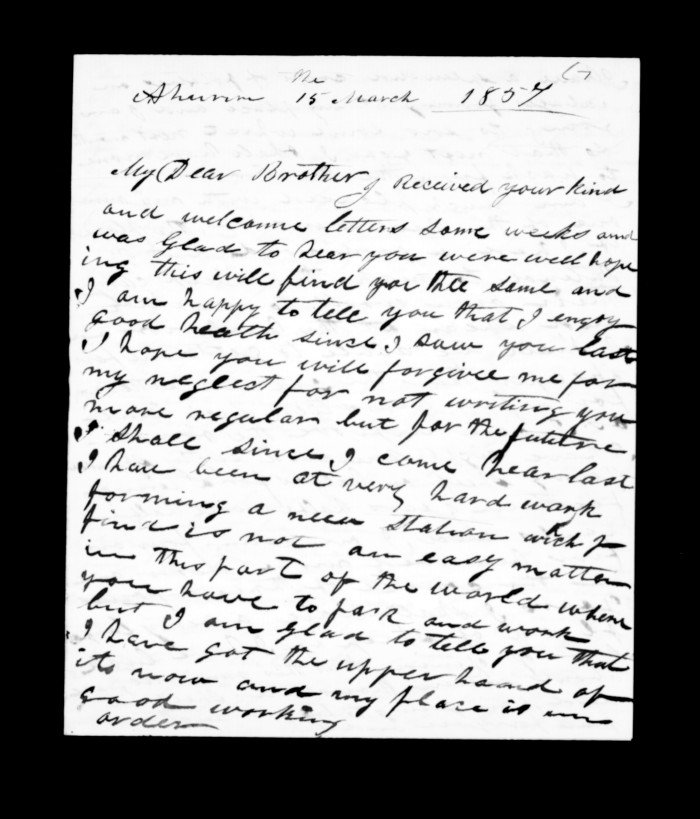 Ahuriri the 15 March 1857
My Dear Brother I Received your kind
and welcome letters some weeks and
was Glad to hear you were well hope
ing this will find you the same and
I am happy to tell you that I enjoy
good heath since I saw you last
I hope you will forgive me for
my neglect for not writing you
more regular but for the future
I shall since I came hear last
I have been at very hard work
forming a new station wich I
find is not an easy matter
in this part of the world where
you have to and work
but I am glad to tell you that
I have got the upper hand of
it now and my place is in
good working
order